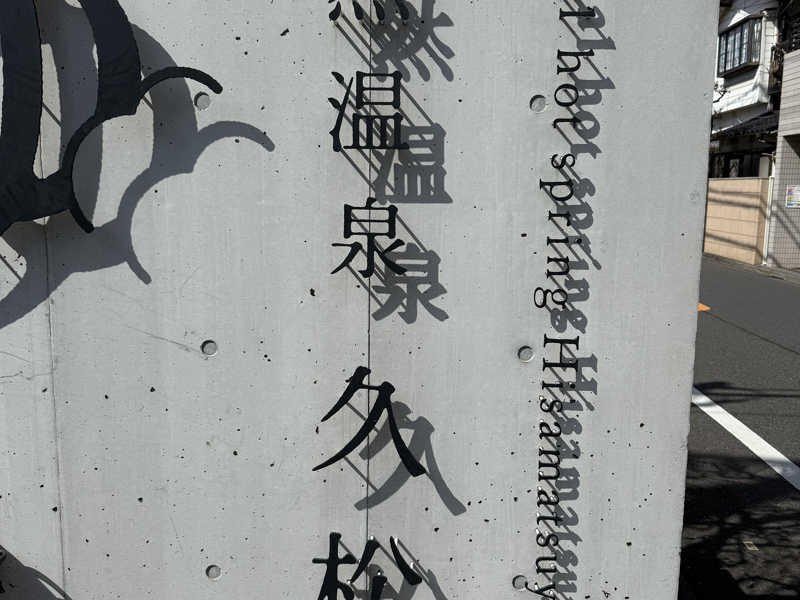 温泉 久松
l hot spring Hisamatsuy